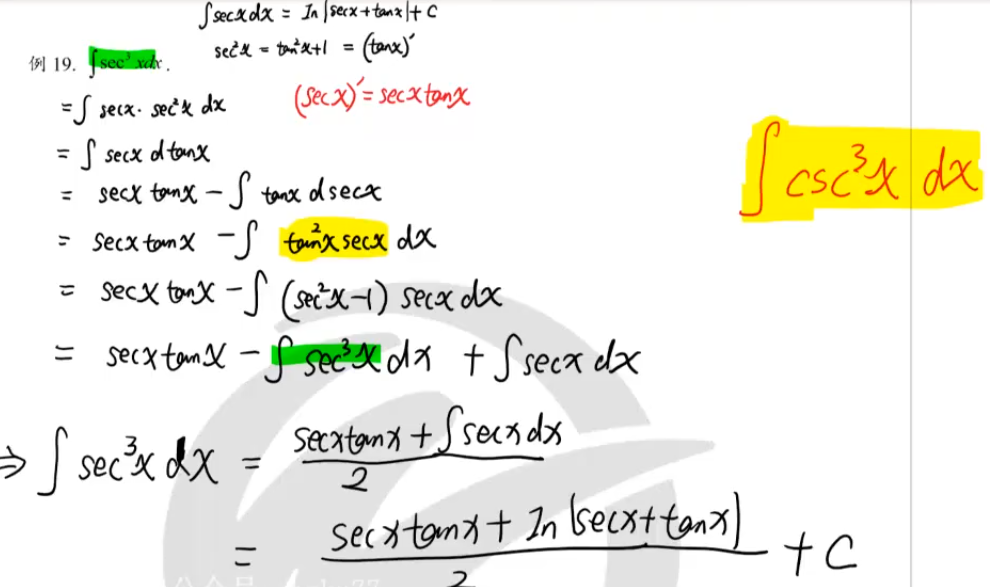 ∫secxdx = In |secx+tanx|+ C
sec²x = tan²x+1 = (tanx)′
例 19. ∫sec³ xdx.
= ∫ secx· sec²x dx
(secx)′= secxtanx
= ∫ secx dtanx
∫ csc³x dx
= secx tanx − ∫ tanx dsecx
= secxtanx − ∫ tan²x secx dx
= secx tanx − ∫ (sec²x−1) secx dx
= secxtanx − ∫ sec³x dx + ∫secx dx
⇒ ∫ sec³x dx = (secxtanx + ∫secxdx)/2
= (secxtanx + In |secx+tanx|)/2 + C